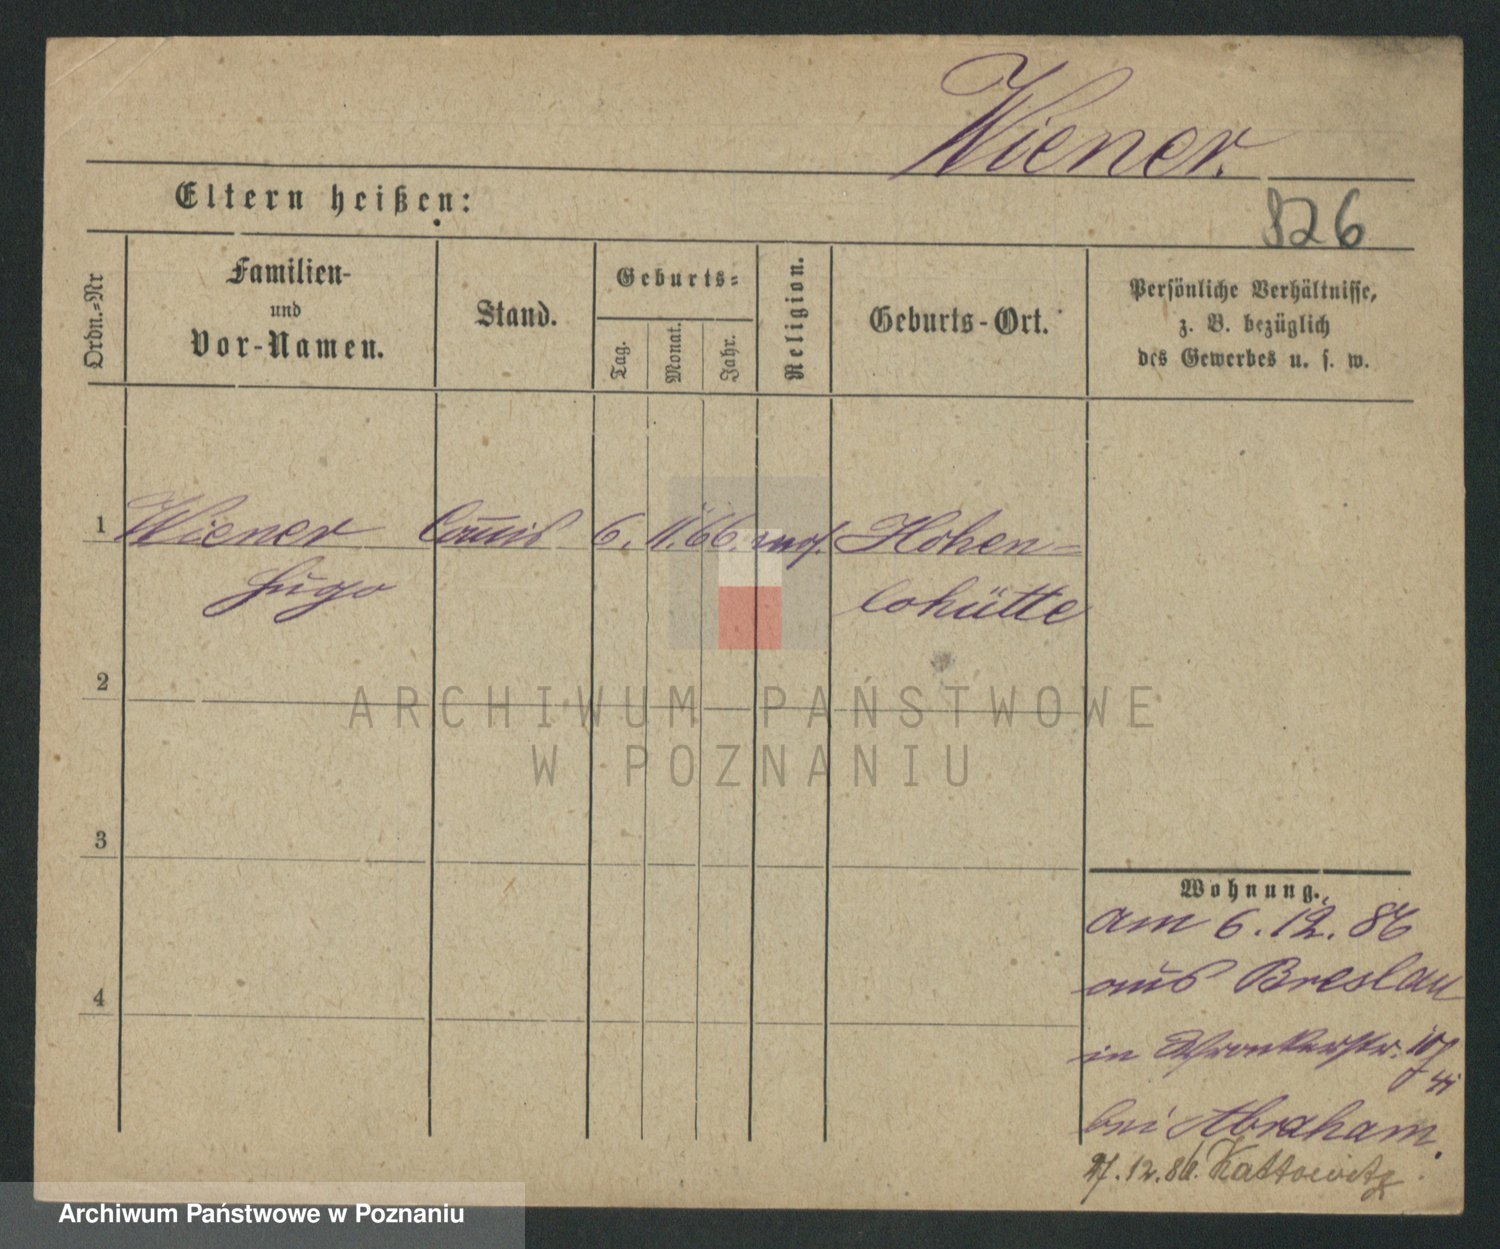 Wiener.
Eltern heißen:
826
Ordn.-Nr
Familien-
und
Vor-Namen.
Stand.
Geburts-
Tag.
Monat.
Jahr.
Religion.
Geburts-Ort.
Persönliche Verhältnisse,
z. B. bezüglich
des Gewerbes u. s. w.
1 Wiener Com̅is 6. 11. 66. mos. Hohen=
Hugo lohütte
2
3
4
Wohnung.
am 6.12.86
aus Breslau
in Wronkerstr.
bei Abraham.
27.12.86. Kattowitz
ARCHIWUM PAŃSTWOWE
W POZNANIU
Archiwum Państwowe w Poznaniu